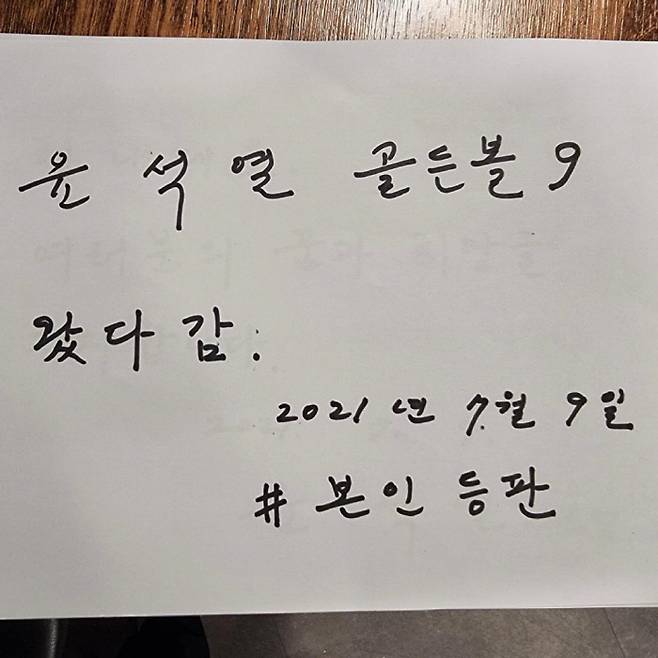 윤석열 골든볼 9
왔다감.
2021년 7월 9일
# 본인 등판